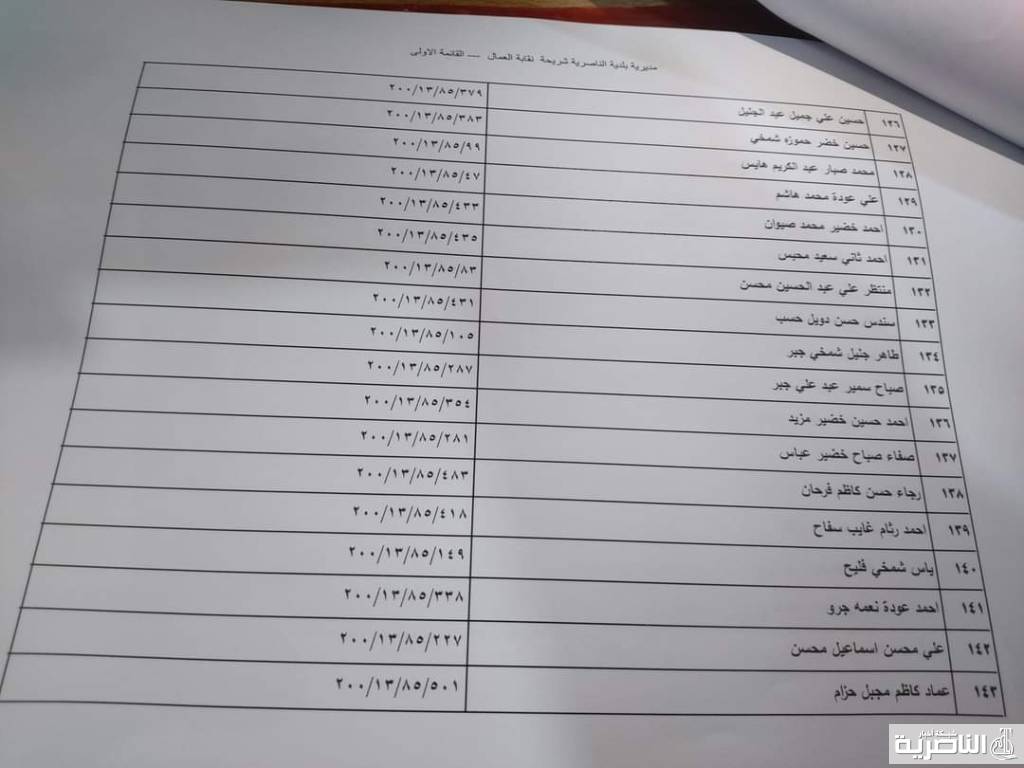 مديرية بلدية الناصرية شريحة نقابة العمال --- القائمة الاولى
١٢٦ حسين علي جميل عبد الجليل ٢٠٠/١٣/٨٥/٣٧٩
١٢٧ حسين خضر حموزه شمخي ٢٠٠/١٣/٨٥/٣٨٣
١٢٨ محمد صبار عبد الكريم هايس ٢٠٠/١٣/٨٥/٩٩
١٢٩ علي عودة محمد هاشم ٢٠٠/١٣/٨٥/٤٧
١٣٠ احمد خضير محمد صيوان ٢٠٠/١٣/٨٥/٤٣٣
١٣١ احمد ثاني سعيد محيس ٢٠٠/١٣/٨٥/٤٣٥
١٣٢ منتظر علي عبد الحسين محسن ٢٠٠/١٣/٨٥/٨٣
١٣٣ سندس حسن دويل حسب ٢٠٠/١٣/٨٥/٤٣١
١٣٤ طاهر جليل شمخي جبر ٢٠٠/١٣/٨٥/١٠٥
١٣٥ صباح سمير عبد علي جبر ٢٠٠/١٣/٨٥/٢٨٧
١٣٦ احمد حسين خضير مزيد ٢٠٠/١٣/٨٥/٣٥٤
١٣٧ صفاء صباح خضير عباس ٢٠٠/١٣/٨٥/٢٨١
١٣٨ رجاء حسن كاظم فرحان ٢٠٠/١٣/٨٥/٤٨٣
١٣٩ احمد رثام غايب سفاح ٢٠٠/١٣/٨٥/٤١٨
١٤٠ ياس شمخي فليح ٢٠٠/١٣/٨٥/١٤٩
١٤١ احمد عودة نعمه جرو ٢٠٠/١٣/٨٥/٣٣٨
١٤٢ علي محسن اسماعيل محسن ٢٠٠/١٣/٨٥/٢٢٧
١٤٣ عماد كاظم مجبل حزام ٢٠٠/١٣/٨٥/٥٠١
شبكة أخبار
الناصرية